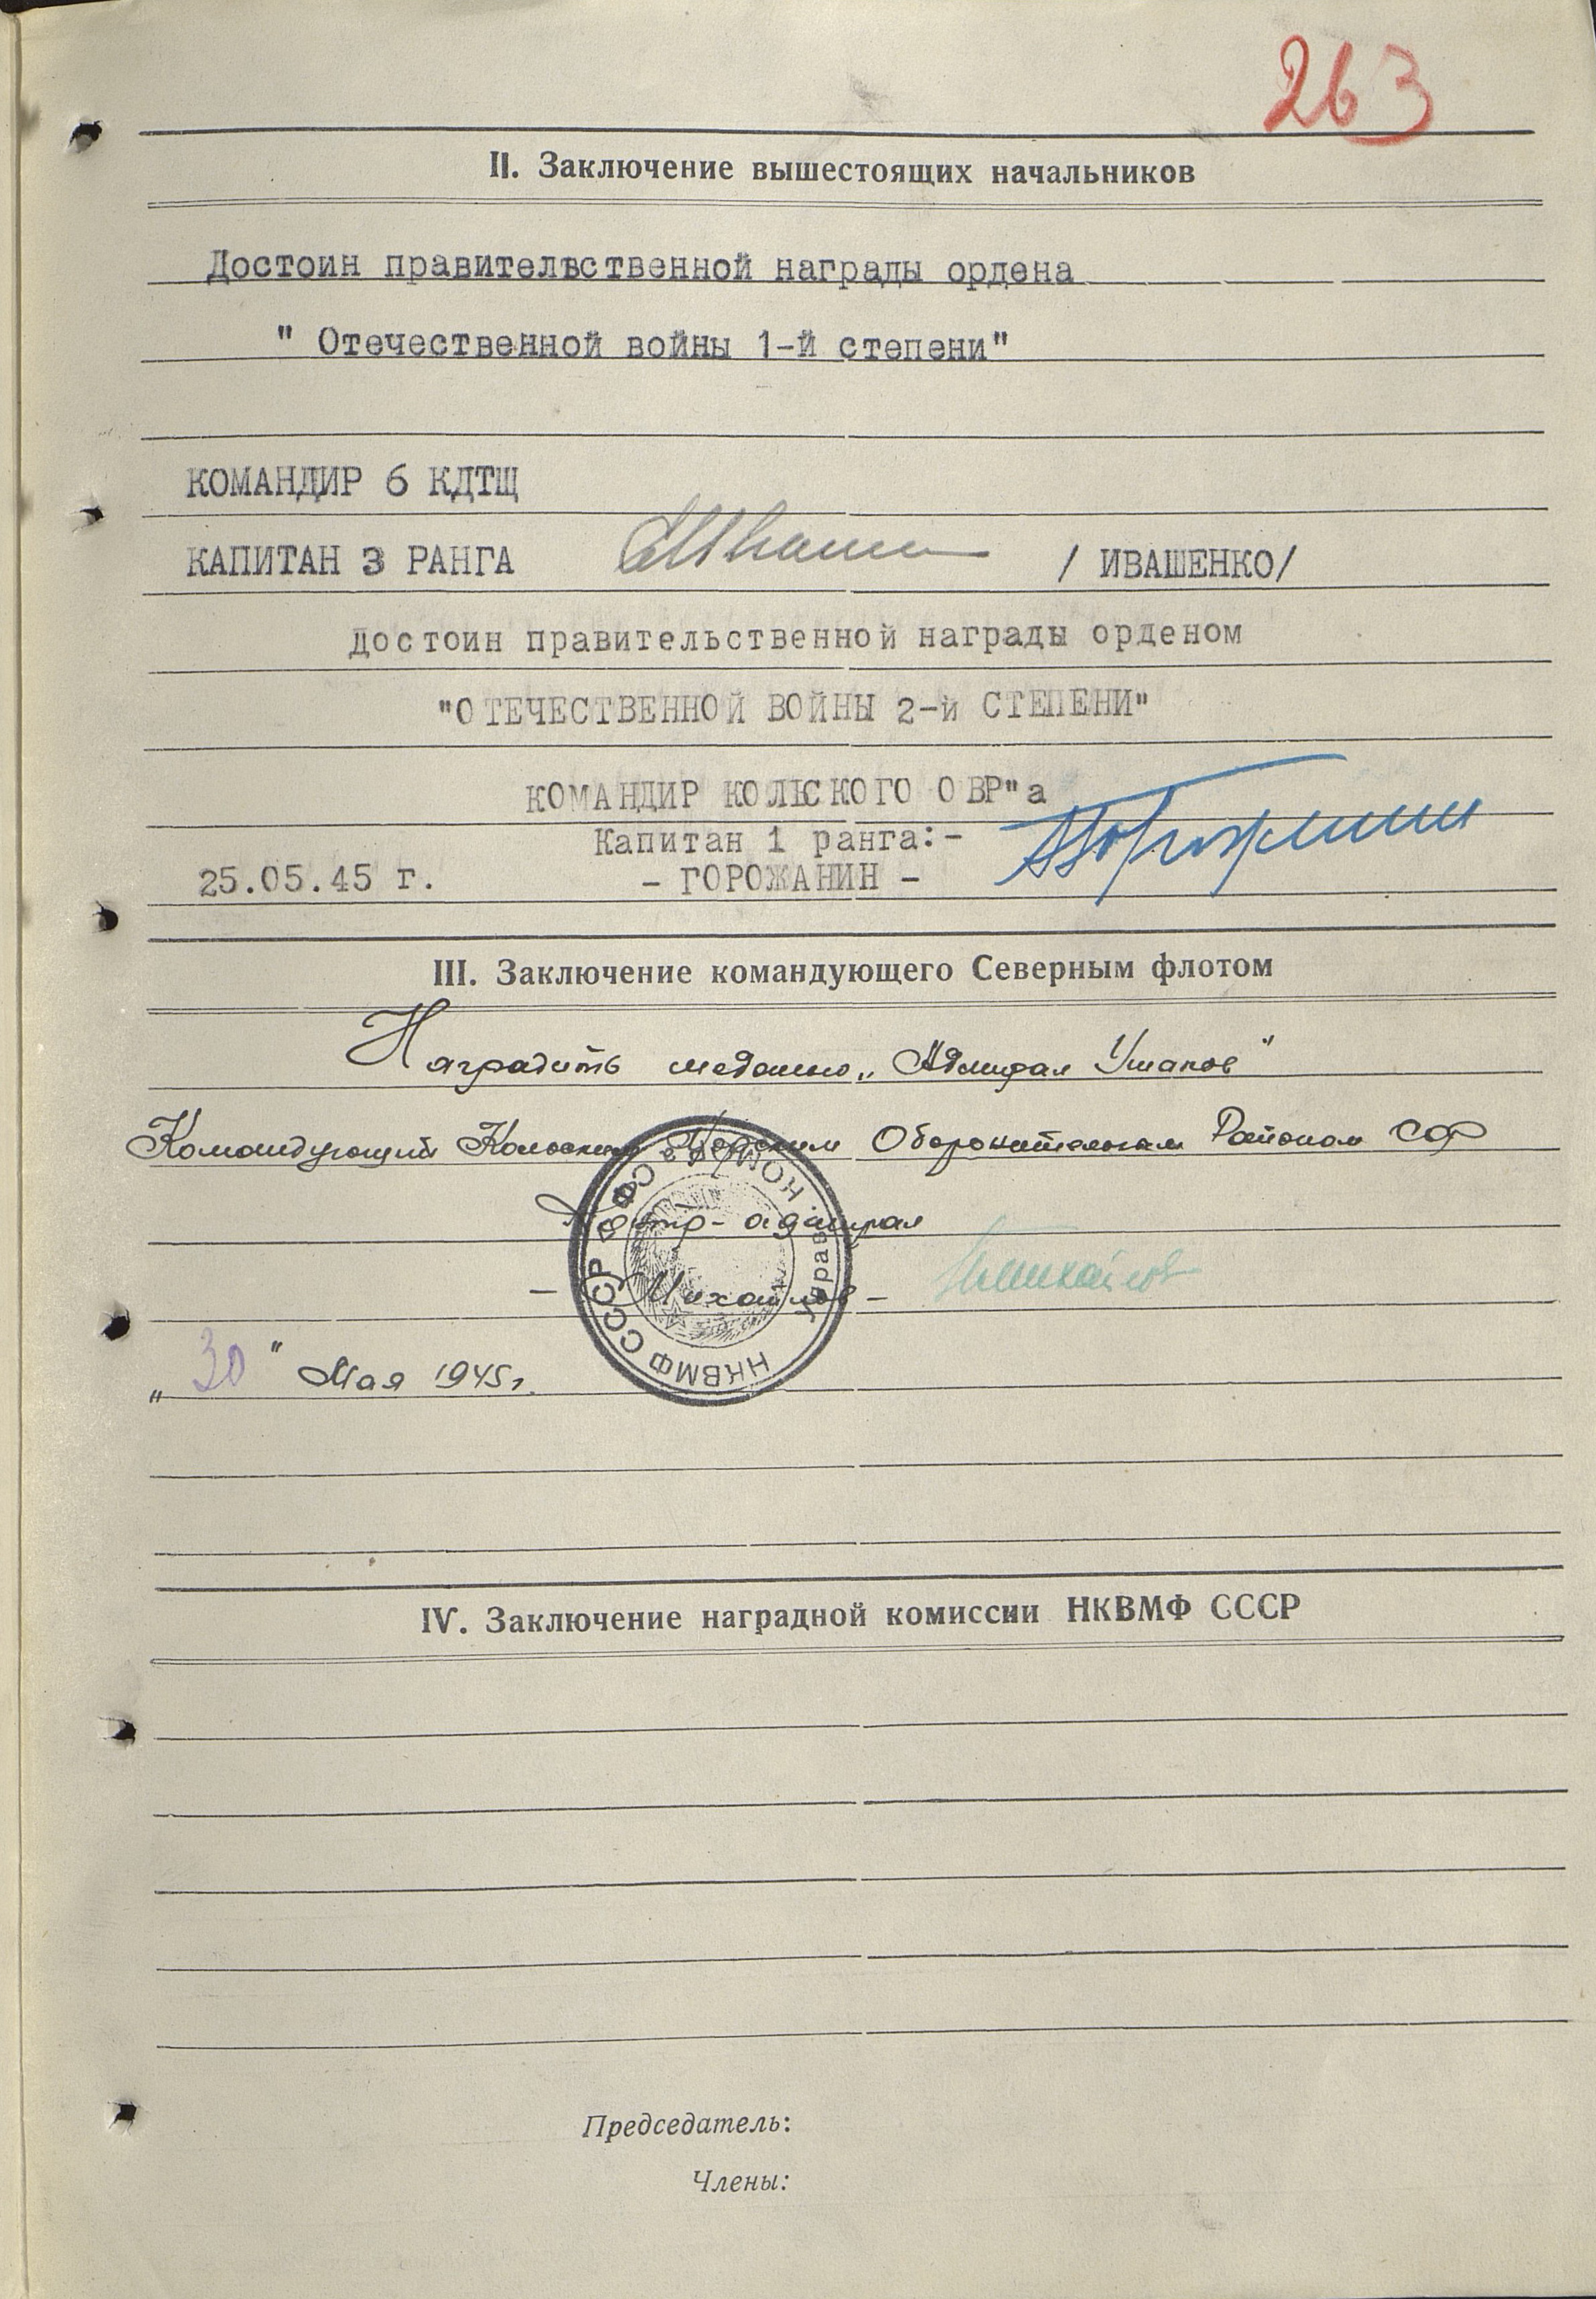 263
II. Заключение вышестоящих начальников
Достоин правительственной награды ордена
" Отечественной войны 1-й степени"
КОМАНДИР 6 КДТЩ
КАПИТАН 3 РАНГА / ИВАШЕНКО/
достоин правительственной награды орденом
"ОТЕЧЕСТВЕННОЙ ВОЙНЫ 2-й СТЕПЕНИ"
КОМАНДИР КОЛЬСКОГО ОВР"а
Капитан 1 ранга:-
25.05.45 г. - ГОРОЖАНИН -
III. Заключение командующего Северным флотом
Наградить медалью „Адмирал Ушаков"
Командующий Кольским Морским Оборонительным Районом СФ
Контр-адмирал
- Михайлов - Михайлов
„30" Мая 1945г.
НКВМФ СССР
IV. Заключение наградной комиссии НКВМФ СССР
Председатель:
Члены: